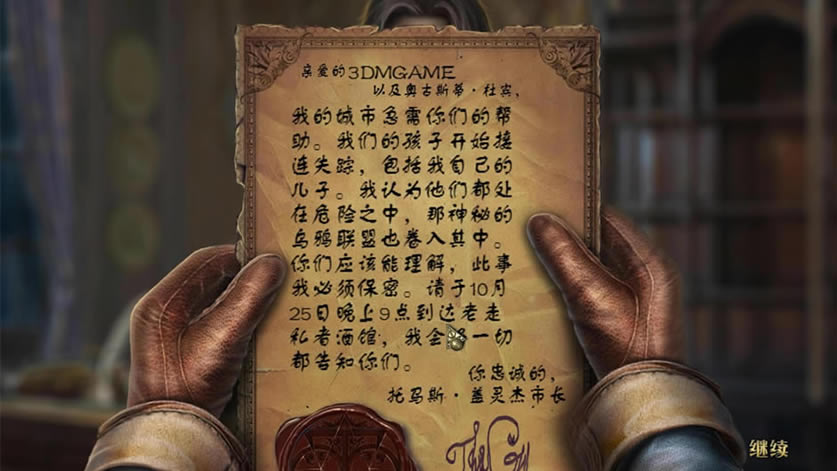 亲爱的3DMGAME
以及奥古斯蒂·杜宾,
我的城市急需你们的帮
助。我们的孩子开始接
连失踪，包括我自己的
儿子。我认为他们都处
在危险之中，那神秘的
乌鸦联盟也卷入其中。
你们应该能理解，此事
我必须保密。请于10月
25日晚上9点到达老走
私者酒馆，我会 一切
都告知你们。
你忠诚的,
托马斯·盖灵杰市长
继续